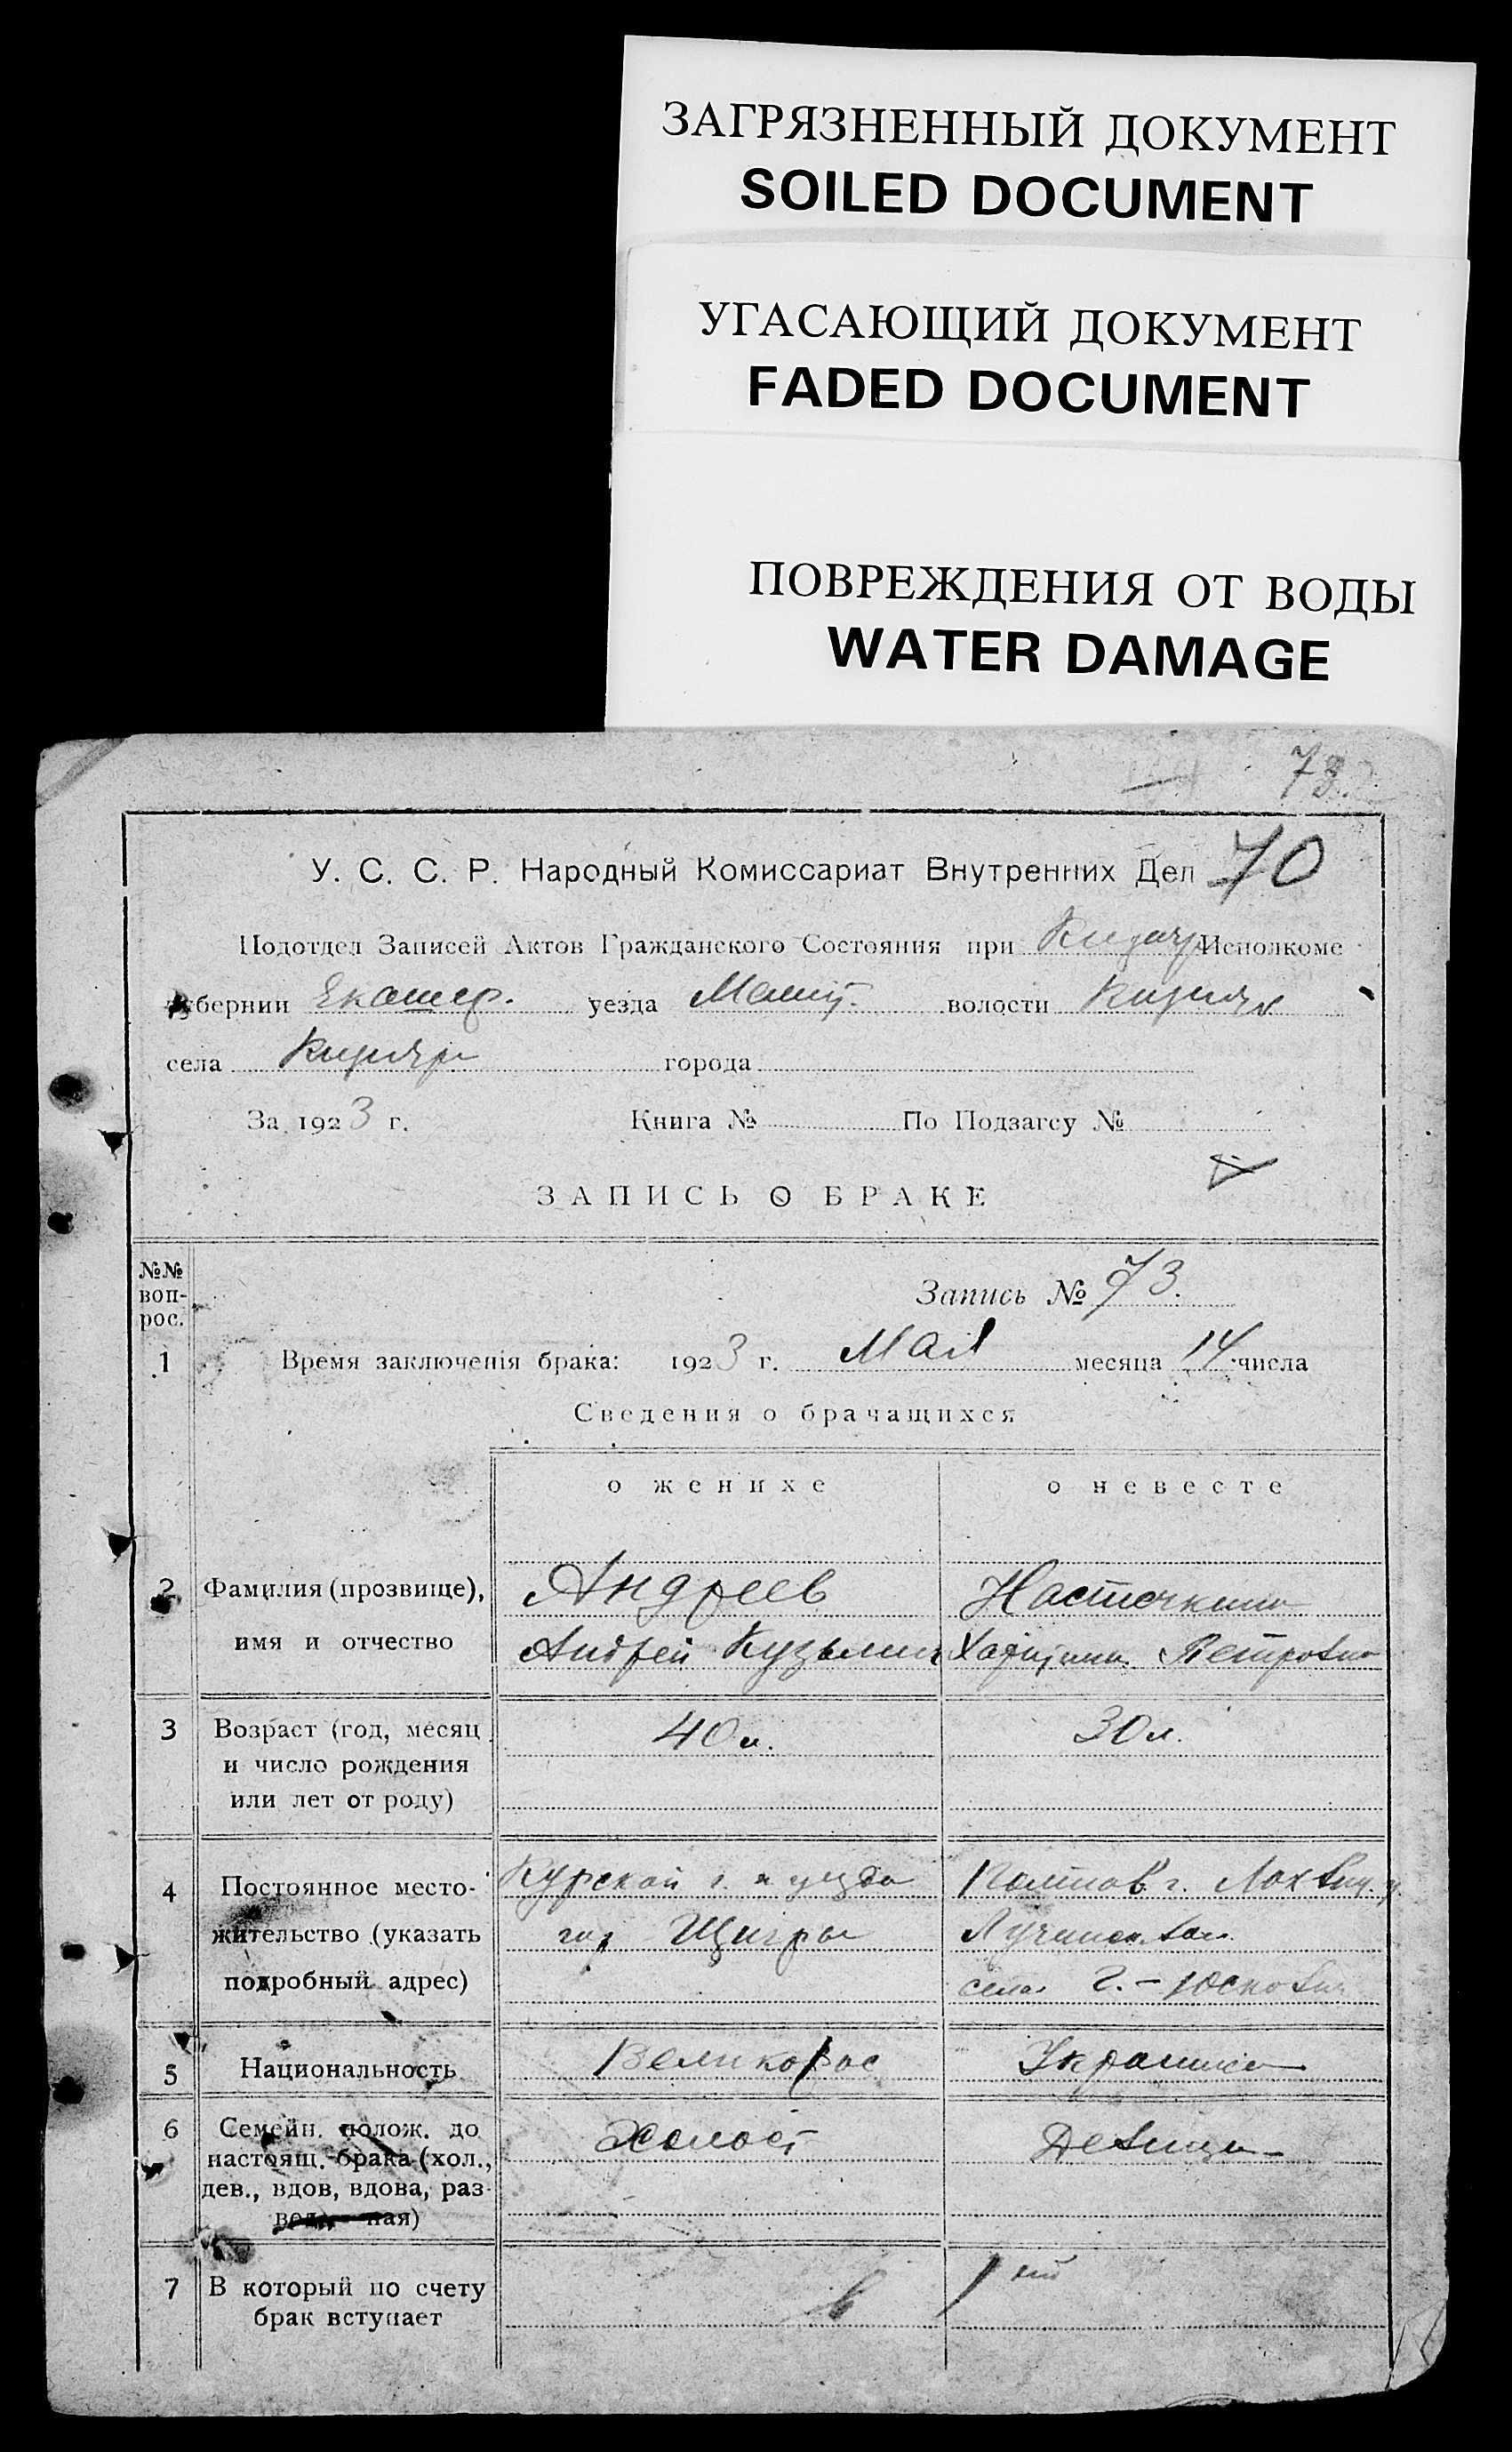 ЗАГРЯЗНЕННЫЙ ДОКУМЕНТ
SOILED DOCUMENT
УГАСАЮЩИЙ ДОКУМЕНТ
FADED DOCUMENT
ПОВРЕЖДЕНИЯ ОТ ВОДЫ
WATER DAMAGE
73
У. С. С. Р. Народный Комиссариат Внутренних Дел 70
Подотдел Записей Актов Гражданского Состояния при Исполкоме
губернии Екатер. уезда волости
села города
За 1923 г. Книга № По Подзагсу №
ЗАПИСЬ О БРАКЕ
№№ воп-рос.
Запись № 73.
1 Время заключенія брака: 1923 г. Мая месяца 14 числа
Сведения о брачащихся
о женихе о невесте
2 Фамилия (прозвище), Андреев
имя и отчество Андрей Кузьмич Петровна
3 Возраст (год, месяц 40 л. 30 л.
и число рождения
или лет от роду)
4 Постоянное место- Курской г. и уезда Полтав. г. Лохвиц. у.
жительство (указать гор Щигры
подробный адрес) села
5 Национальность Великорос Украинка
6 Семейн. полож. до Холост Девица
настоящ. брака (хол.,
дев., вдов, вдова, раз-
вед ная)
7 В который по счету 1 ый
брак вступает